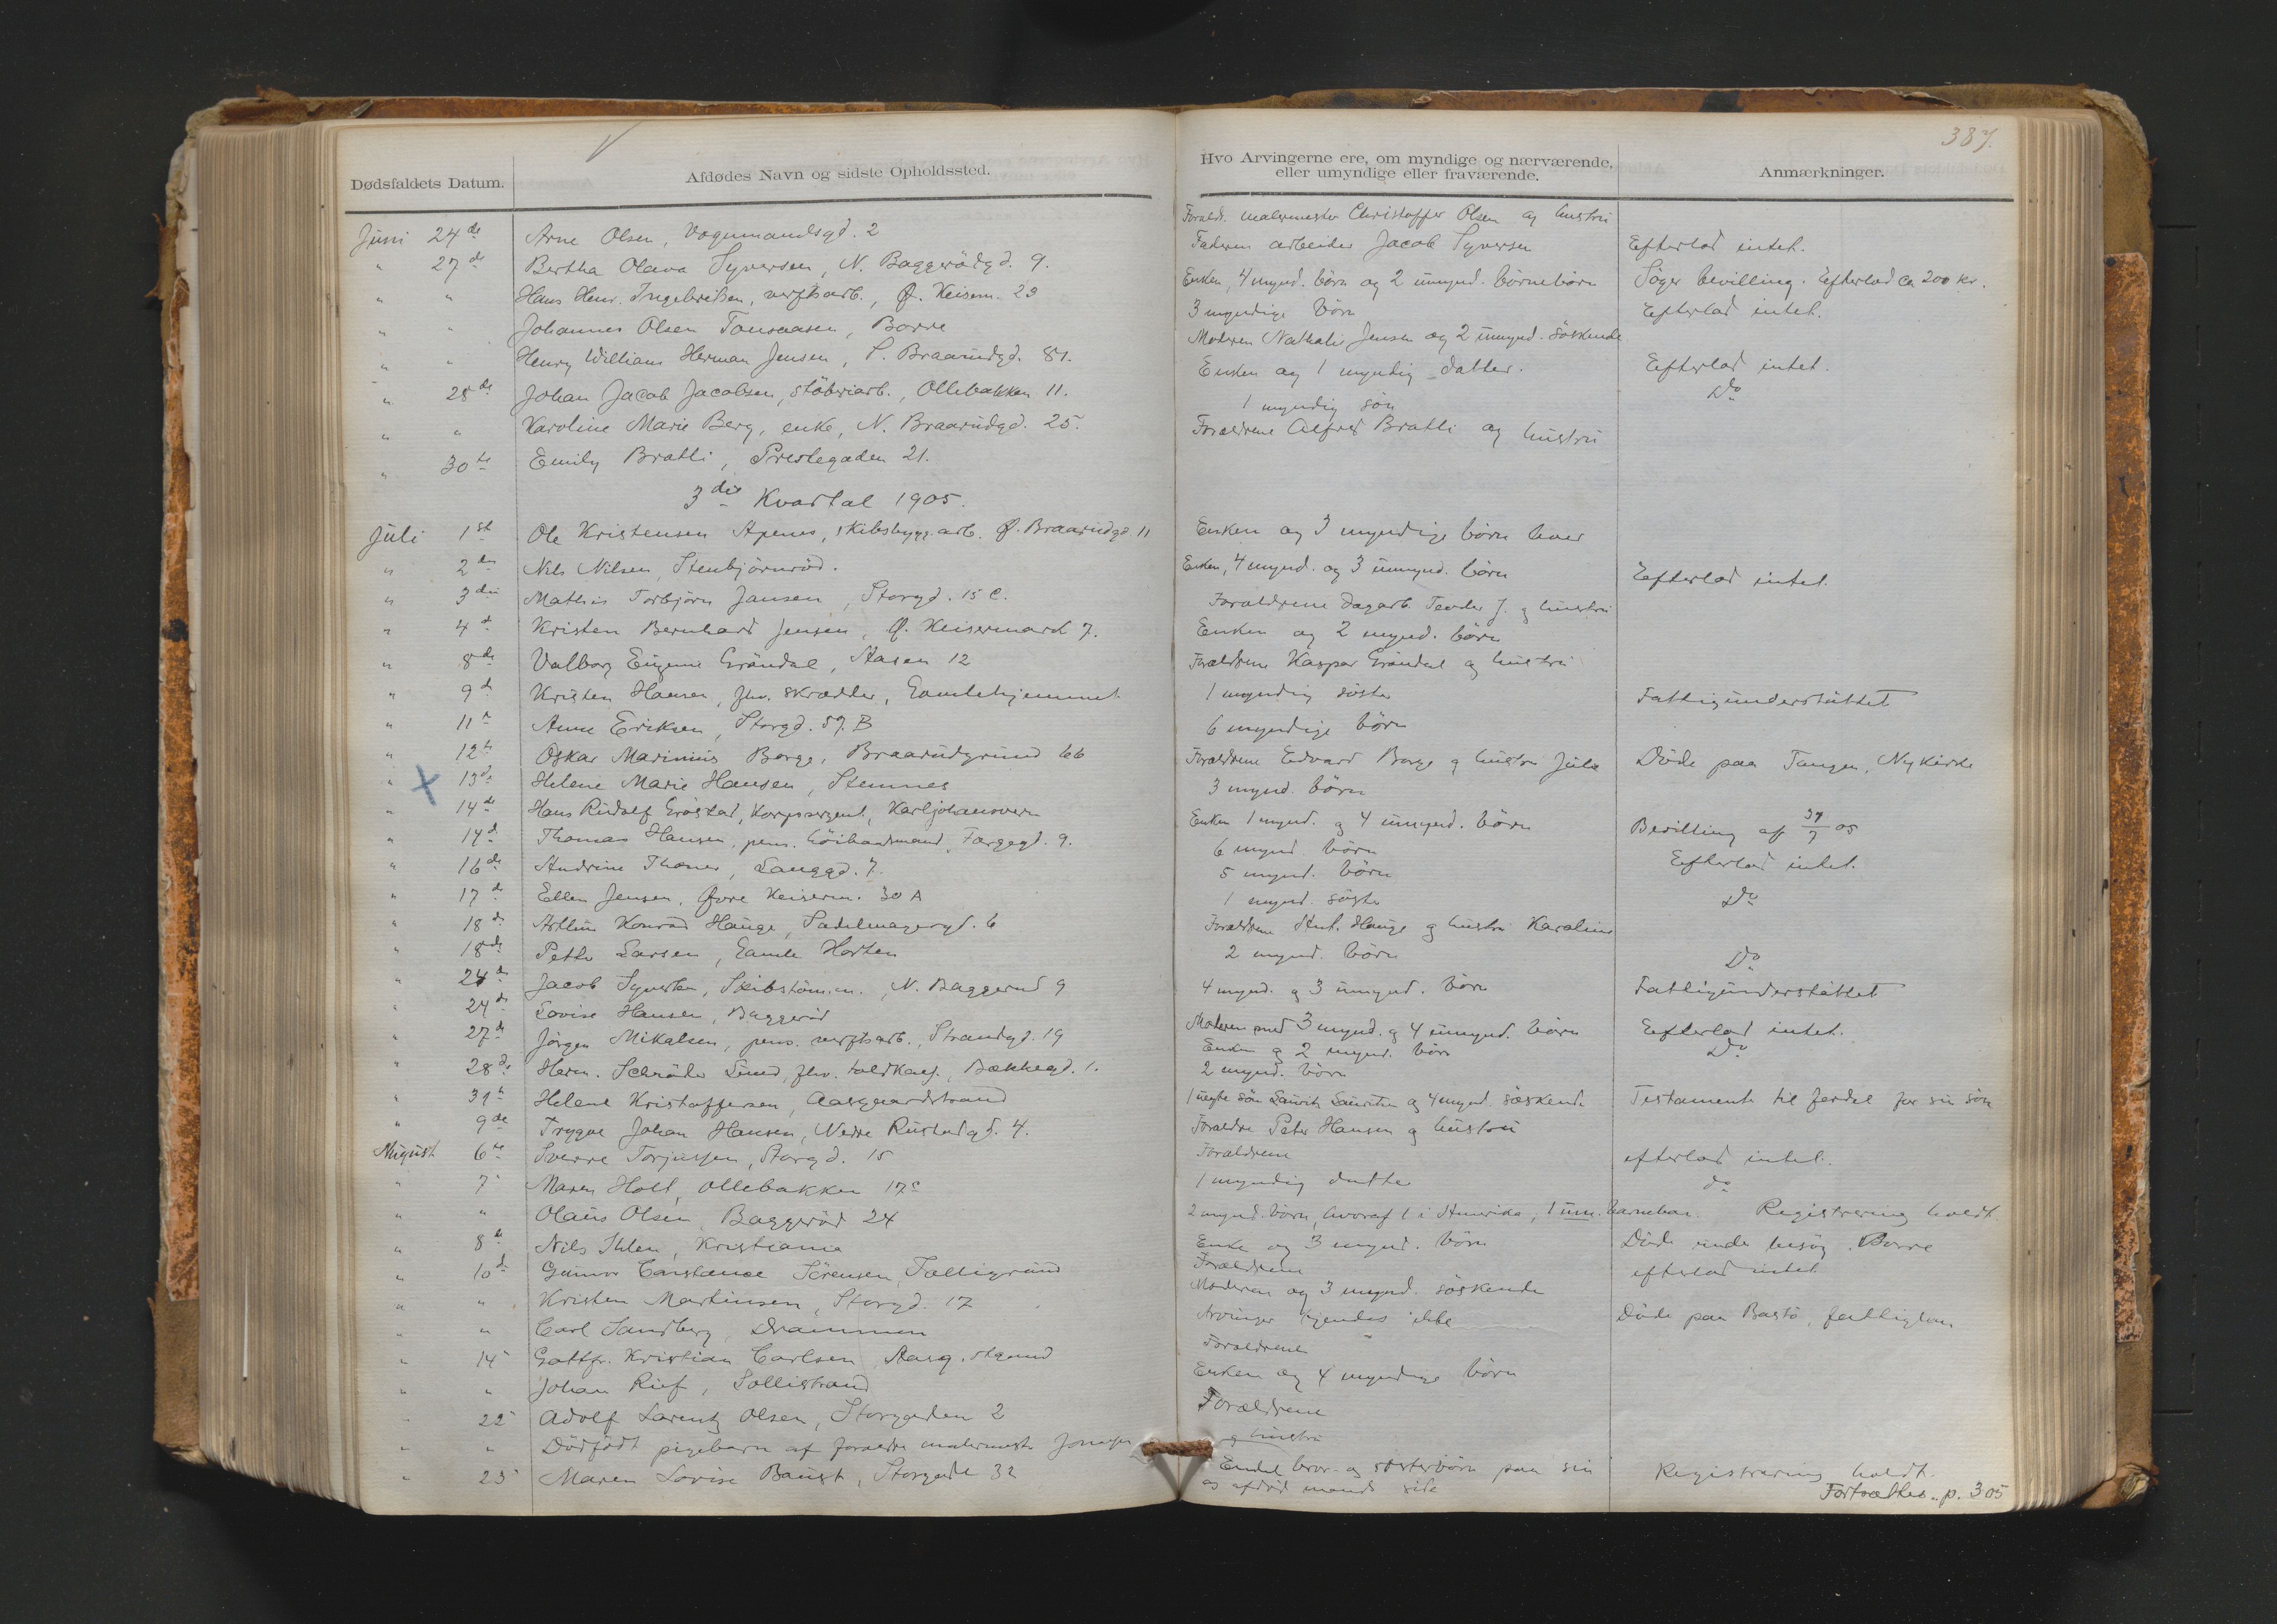 387.
Dødsfaldets Datum. Afdødes Navn og sidste Opholdssted. Hvo Arvingerne ere, om myndige og nærværende, eller umyndige eller fraværende. Anmærkninger.
Juni 24de Arne Olsen, Vognmandsgd. 2 Foræld. malermester Christoffer Olsen og hustru
" 27de Bertha Olava Syversen, N. Baggerödgd. 9. Faderen arbeider Jacob Syversen Efterlod intet.
" " Hans Henr. Ingebretsen, verftsarb., Ø. Keiserm. 23 Enken, 4 mynd. börn og 2 umynd. börnebörn Söger bevilling. Efterlod ca 200 kr.
" " Johannes Olsen Tonsaasen, Borre 3 myndige börn Efterlod intet.
" " Henry William Herman Jensen, S. Braarudgd. 81. Moderen Nathalie Jensen og 2 umynd. söskende
" 28de Johan Jacob Jacobsen, stöberiarb., Ollebakken 11. Enken og 1 myndig datter. Efterlod intet.
" " Karoline Marie Berg, enke, N. Braarudgd. 25. 1 myndig sön Do
" 30te Emily Bratli, Prestegaden 21. Forældrene Alfred Bratli og hustru
3die Kvartal 1905.
Juli 1st Ole Kristensen Apenes, skibsbygg.arb. Ø. Braarudgd 11 Enken og 3 myndige börn
" 2den Nils Nilsen, Stenbjörnröd. Enken, 4 mynd. og 3 umynd. börn Efterlod intet.
" 3die Mathis Torbjörn Jansen, Storgd. 15 C. Forældrene dagarb. J. og hustru
" 4d Kristen Bernhard Jensen, Ø. Keisermark 7. Enken og 2 mynd. börn
" 8de Valborg Eugenie Gröndal, Aasen 12 Forældrene Kaspar Gröndal og hustru
" 9d Kristen Hansen, fhv. skrædder, Gamlehjemmet 1 myndig söster Fattigunderstöttet
" 11 Anne Eriksen, Storgd. 59. B 6 myndige börn
" 12t Oskar Marinius Borge, Braarudgrund 66 Forældrene Edvard Borge og hustru Julie Döde paa Tangen, Nykirke
" 13d Helene Marie Hansen, Stemnes 3 mynd. börn
" 14de Hans Rudolf Gröstad, Korpssergent, Karljohansvern Enken 1 mynd. og 4 umynd. börn Bevilling af 31/7 05
" 14d Thomas Hansen, pens. höibaadsmand, Færgegd. 9. 6 mynd. börn Efterlod intet.
" 16de Andrine Thones, Langgd. 7. 5 mynd. börn
" 17de Ellen Jensen, Övre Keiserm. 30 A 1 mynd. söster Do
" 18de Arthur Konrad Hauge, Sadelmagergd. 6 Forældrene Ant. Hauge og hustru Karoline
" 18de Petter Larsen, Gamle Horten 2 mynd. börn Do
" 24de Jacob Syvertsen, Skibstömm., N. Baggerud 9 4 mynd. og 3 umynd. börn Fattigunderstöttet
" 24de Lovise Hansen, Baggeröd Moderen med 3 mynd. og 4 umynd. börn Efterlod intet.
" 27de Jörgen Mikalsen, pens. verftsarb., Strandgd. 19 Enken og 2 mynd. börn Do
" 28de Herm. Schröder Lund, fhv. toldkas., Bækkegd. 1. 2 mynd. börn
" 31t Helene Kristoffersen, Aasgaardstrand 1 uegte sön Laurits Lauritsen og 4 mynd. söskende Testamente til fordel for sin sön
" 9de Trygve Johan Hansen, Nedre Rustadgd. 4. Forældre Peter Hansen og hustru
August 6te Sverre Torjussen, Storgd. 15 Forældrene efterlod intet.
" 7 Maren Holt, Ollebakken 17c 1 myndig datter do
" " Olaus Olsen, Baggeröd 24 2 mynd. börn, hvoraf 1 i Amerika, 1 um. barnebarn. Registrering holdt
" 8d Nils Ihlen, Kristiania Enke og 3 mynd. börn Döde under besög Borre
" 10de Gunvor Constance Sörensen, Falligrund Forældrene efterlod intet
" " Kristen Martinsen, Storgd. 17 Moderen og 3 mynd. söskende
" " Carl Sandberg, Drammen Arvinger kjendes ikke Döde paa Bastö, fattiglem
" 14 Gottfr. Kristian Carlsen, Aasg. strand Forældrene
" " Johan Rief, Sollistrand Enken og 4 myndige börn
" 22 Adolf Lorentz Olsen, Storgaden 2 Forældrene
" " Dödfödt pigebarn af forældre malermester og hustru
" 25 Maren Lovise Baust, Storgade 32 Endel bror- og sösterbörn paa sin Registrering holdt.
og afdöd mands side
Fortsættes p. 305